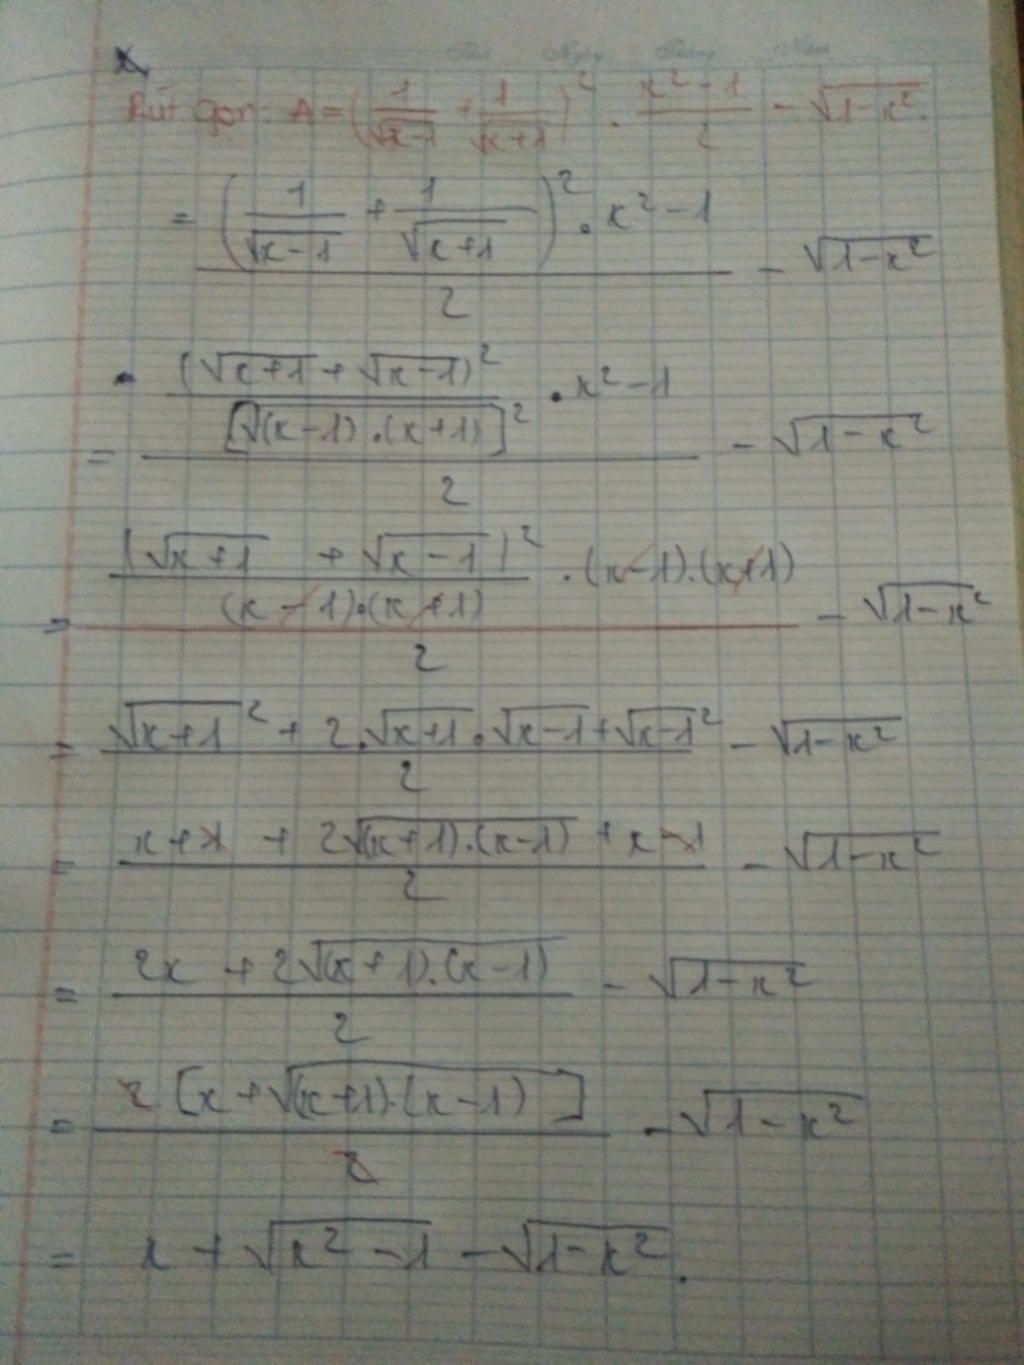 Thứ Ngày Tháng Năm
Rút gọn: A = (1/√(x-1) + 1/√(x+1))² . (x²-1)/2 - √(1-x²).
= ((1/√(x-1) + 1/√(x+1))² . x²-1)/2 - √(1-x²)
= ((√(x+1) + √(x-1))²/[√((x-1).(x+1))]² . x²-1)/2 - √(1-x²)
= ((√(x+1) + √(x-1))²/((x-1).(x+1)) . (x-1).(x+1))/2 - √(1-x²)
= (√(x+1)² + 2.√(x+1).√(x-1) + √(x-1)²)/2 - √(1-x²)
= (x+1 + 2√((x+1).(x-1)) + x-1)/2 - √(1-x²)
= (2x + 2√((x+1).(x-1)))/2 - √(1-x²)
= 2[x + √((x+1).(x-1))]/2 - √(1-x²)
= x + √(x²-1) - √(1-x²).